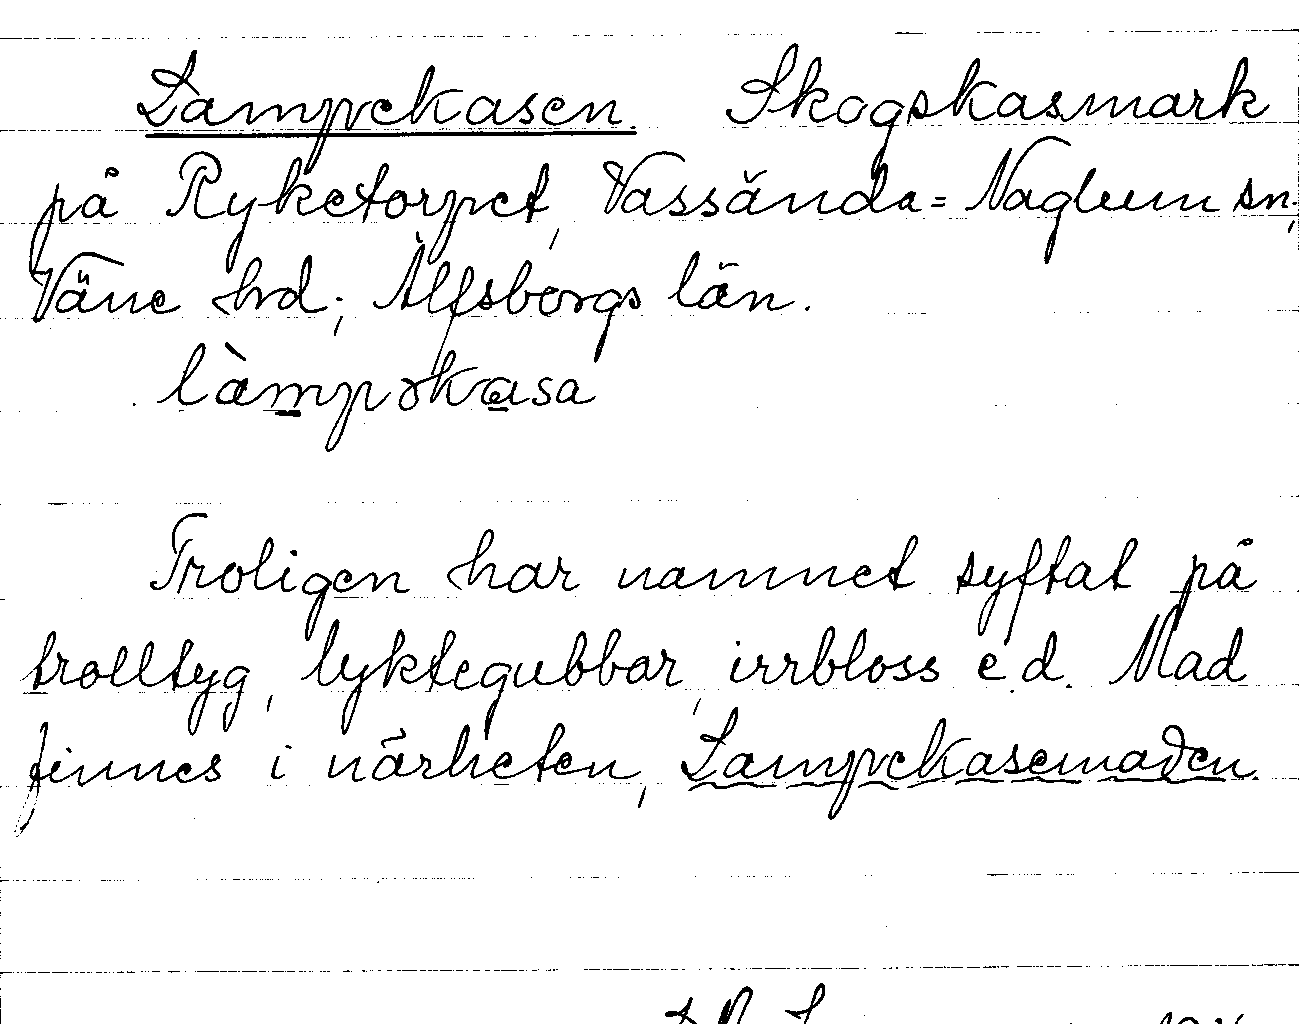 Lampekasen. Skogskasmark
på Ryketorpet, Vassända=Naglum sn,
Väne hrd; Älfsborgs län.
làmpəkasa
Troligen har namnet syftat på
trolltyg, lyktegubbar, irrbloss e.d. Mad
finnes i närheten, Lampekasemaden.